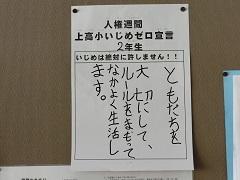 人権週間
上高小いじめゼロ宣言
2年生
いじめは絶対に許しません!!
ともだちを
大切にして、
ルールをまもって
なかよく生活し
ます。